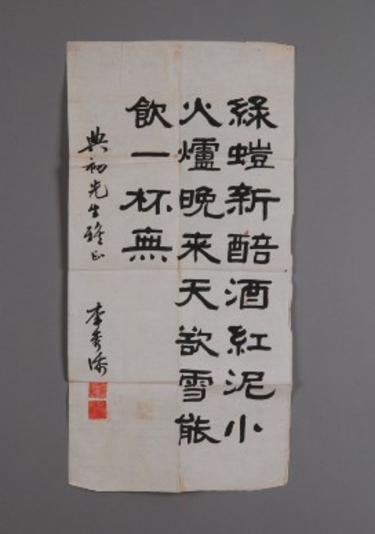 綠螘新醅酒紅泥小
火爐晚来天欲雪能
飲一杯無
典初先生雅正
李秀